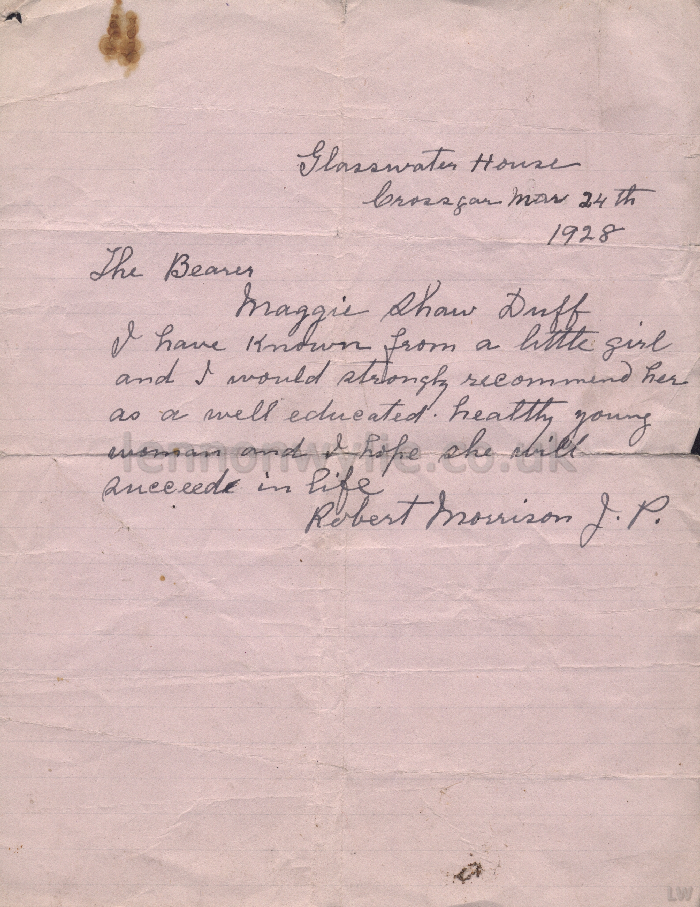 Glasswater House
Crossgar Mar 24th
1928
The Bearer
Maggie Shaw Duff
I have known from a little girl
and I would strongly recommend her
as a well educated. healthy young
woman and I hope she will
succeede in life
Robert Morrison J. P.
lennonwylie.co.uk
LW